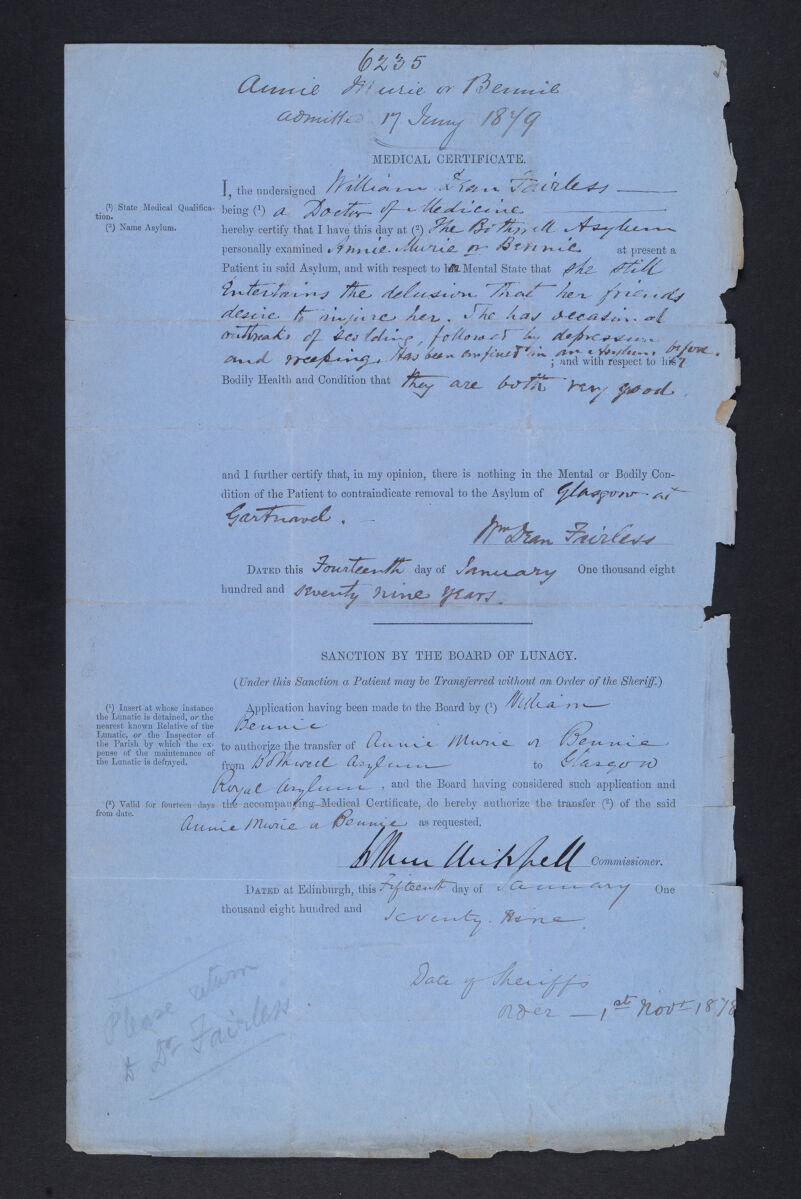 6235
Annie Murie or Bennie
admitted 17 Jany 1879
MEDICAL CERTIFICATE.
I, the undersigned William Dean Fairless
(¹) State Medical Qualifica-
tion.
being (¹) a Doctor of Medicine
(²) Name Asylum.
hereby certify that I have this day at (²) The Bothwell Asylum
personally examined Annie Murie or Bennie at present a
Patient in said Asylum, and with respect to her Mental State that she still
Entertains the delusion that her friends
desire to injure her. She has occasional
outbreaks of scolding, followed by depression
and weeping. Has been confined in an Asylum before.
; and with respect to his
Bodily Health and Condition that they are both very good.
and I further certify that, in my opinion, there is nothing in the Mental or Bodily Con-
dition of the Patient to contraindicate removal to the Asylum of Glasgow at
Gartnavel.
Wm Dean Fairless
DATED this Fourteenth day of January One thousand eight
hundred and seventy nine years.
SANCTION BY THE BOARD OF LUNACY.
(Under this Sanction a Patient may be Transferred without an Order of the Sheriff.)
(¹) Insert at whose instance
the Lunatic is detained, or the
nearest known Relative of the
Lunatic, or the Inspector of
the Parish by which the ex-
pense of the maintenance of
the Lunatic is defrayed.
Application having been made to the Board by (¹) William
Bennie
to authorize the transfer of Annie Murie or Bennie
from Bothwell Asylum to Glasgow
Royal Asylum, and the Board having considered such application and
(²) Valid for fourteen days
from date.
the accompanying Medical Certificate, do hereby authorize the transfer (²) of the said
Annie Murie or Bennie as requested.
Arthur Mitchell Commissioner.
DATED at Edinburgh, this Fifteenth day of January One
thousand eight hundred and seventy nine.
Date of Sheriff's
order – 1st Novr 1878
Please return
to Dr Fairless